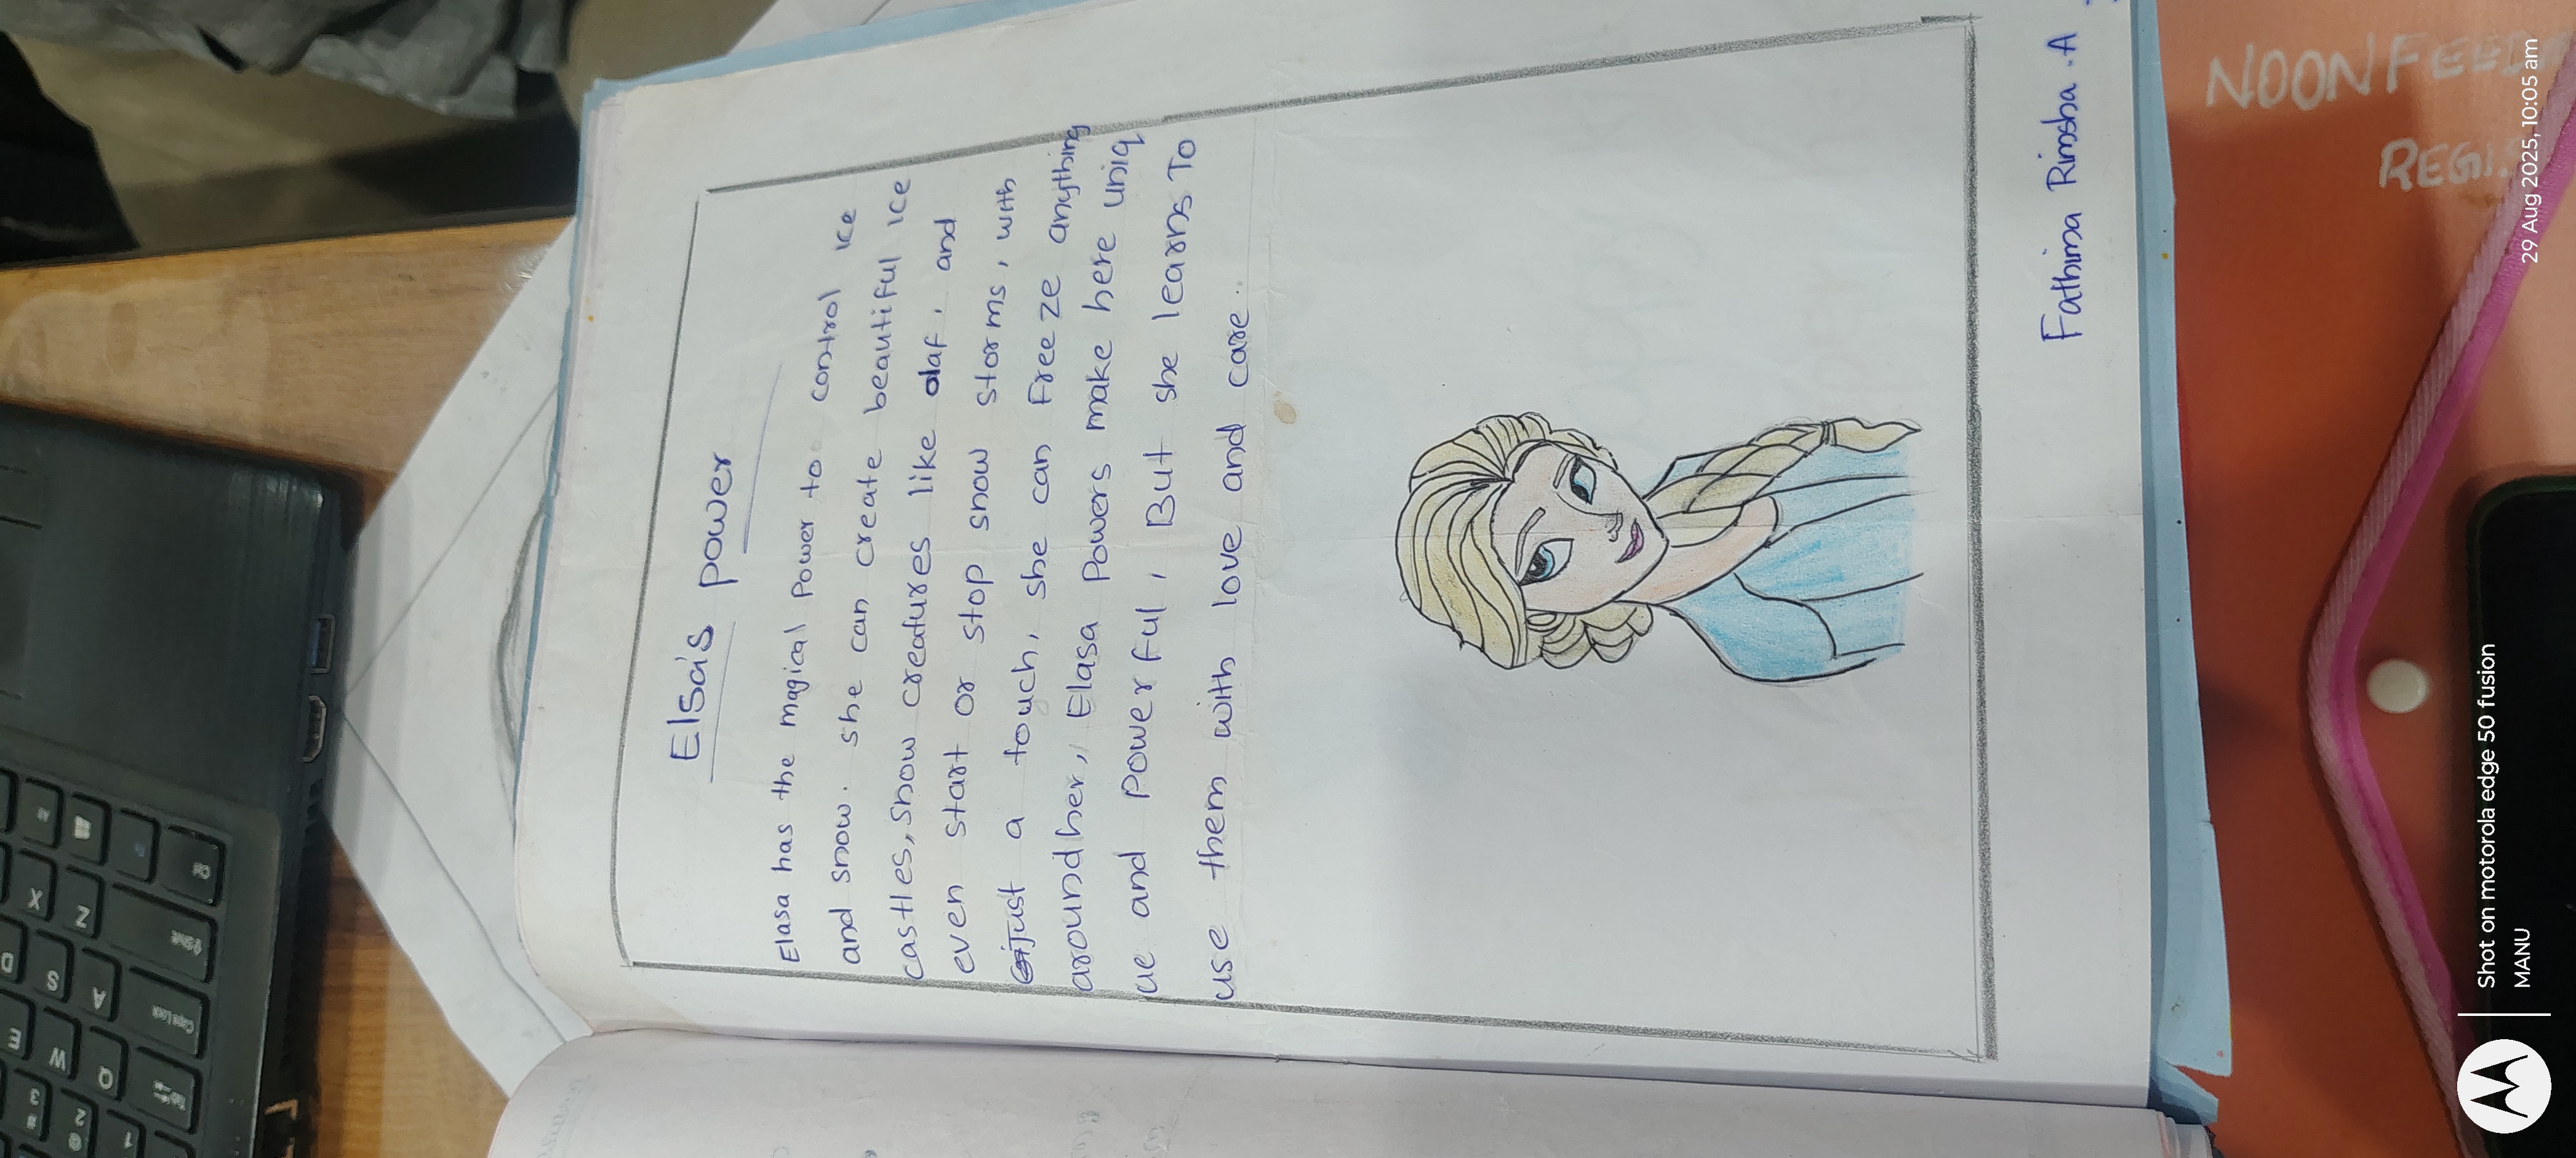 Elsa's power
Elasa has the magical Power to control ice
and snow. she can create beautiful ice
castles, snow creatures like olaf, and
even start or stop snow storms, with
just a touch, she can Freeze anything
aroundher, Elasa Powers make here uniq
ue and Powerful, But she learns To
use them with love and care.
Fathima Rimsha .A
NOON FEED
REGI
29 Aug 2025, 10:05 am
Shot on motorola edge 50 fusion
MANU
Ctrl
Alt
Shift
Caps Lock
Tab
Z
X
A
S
D
Q
W
E
1
2
3